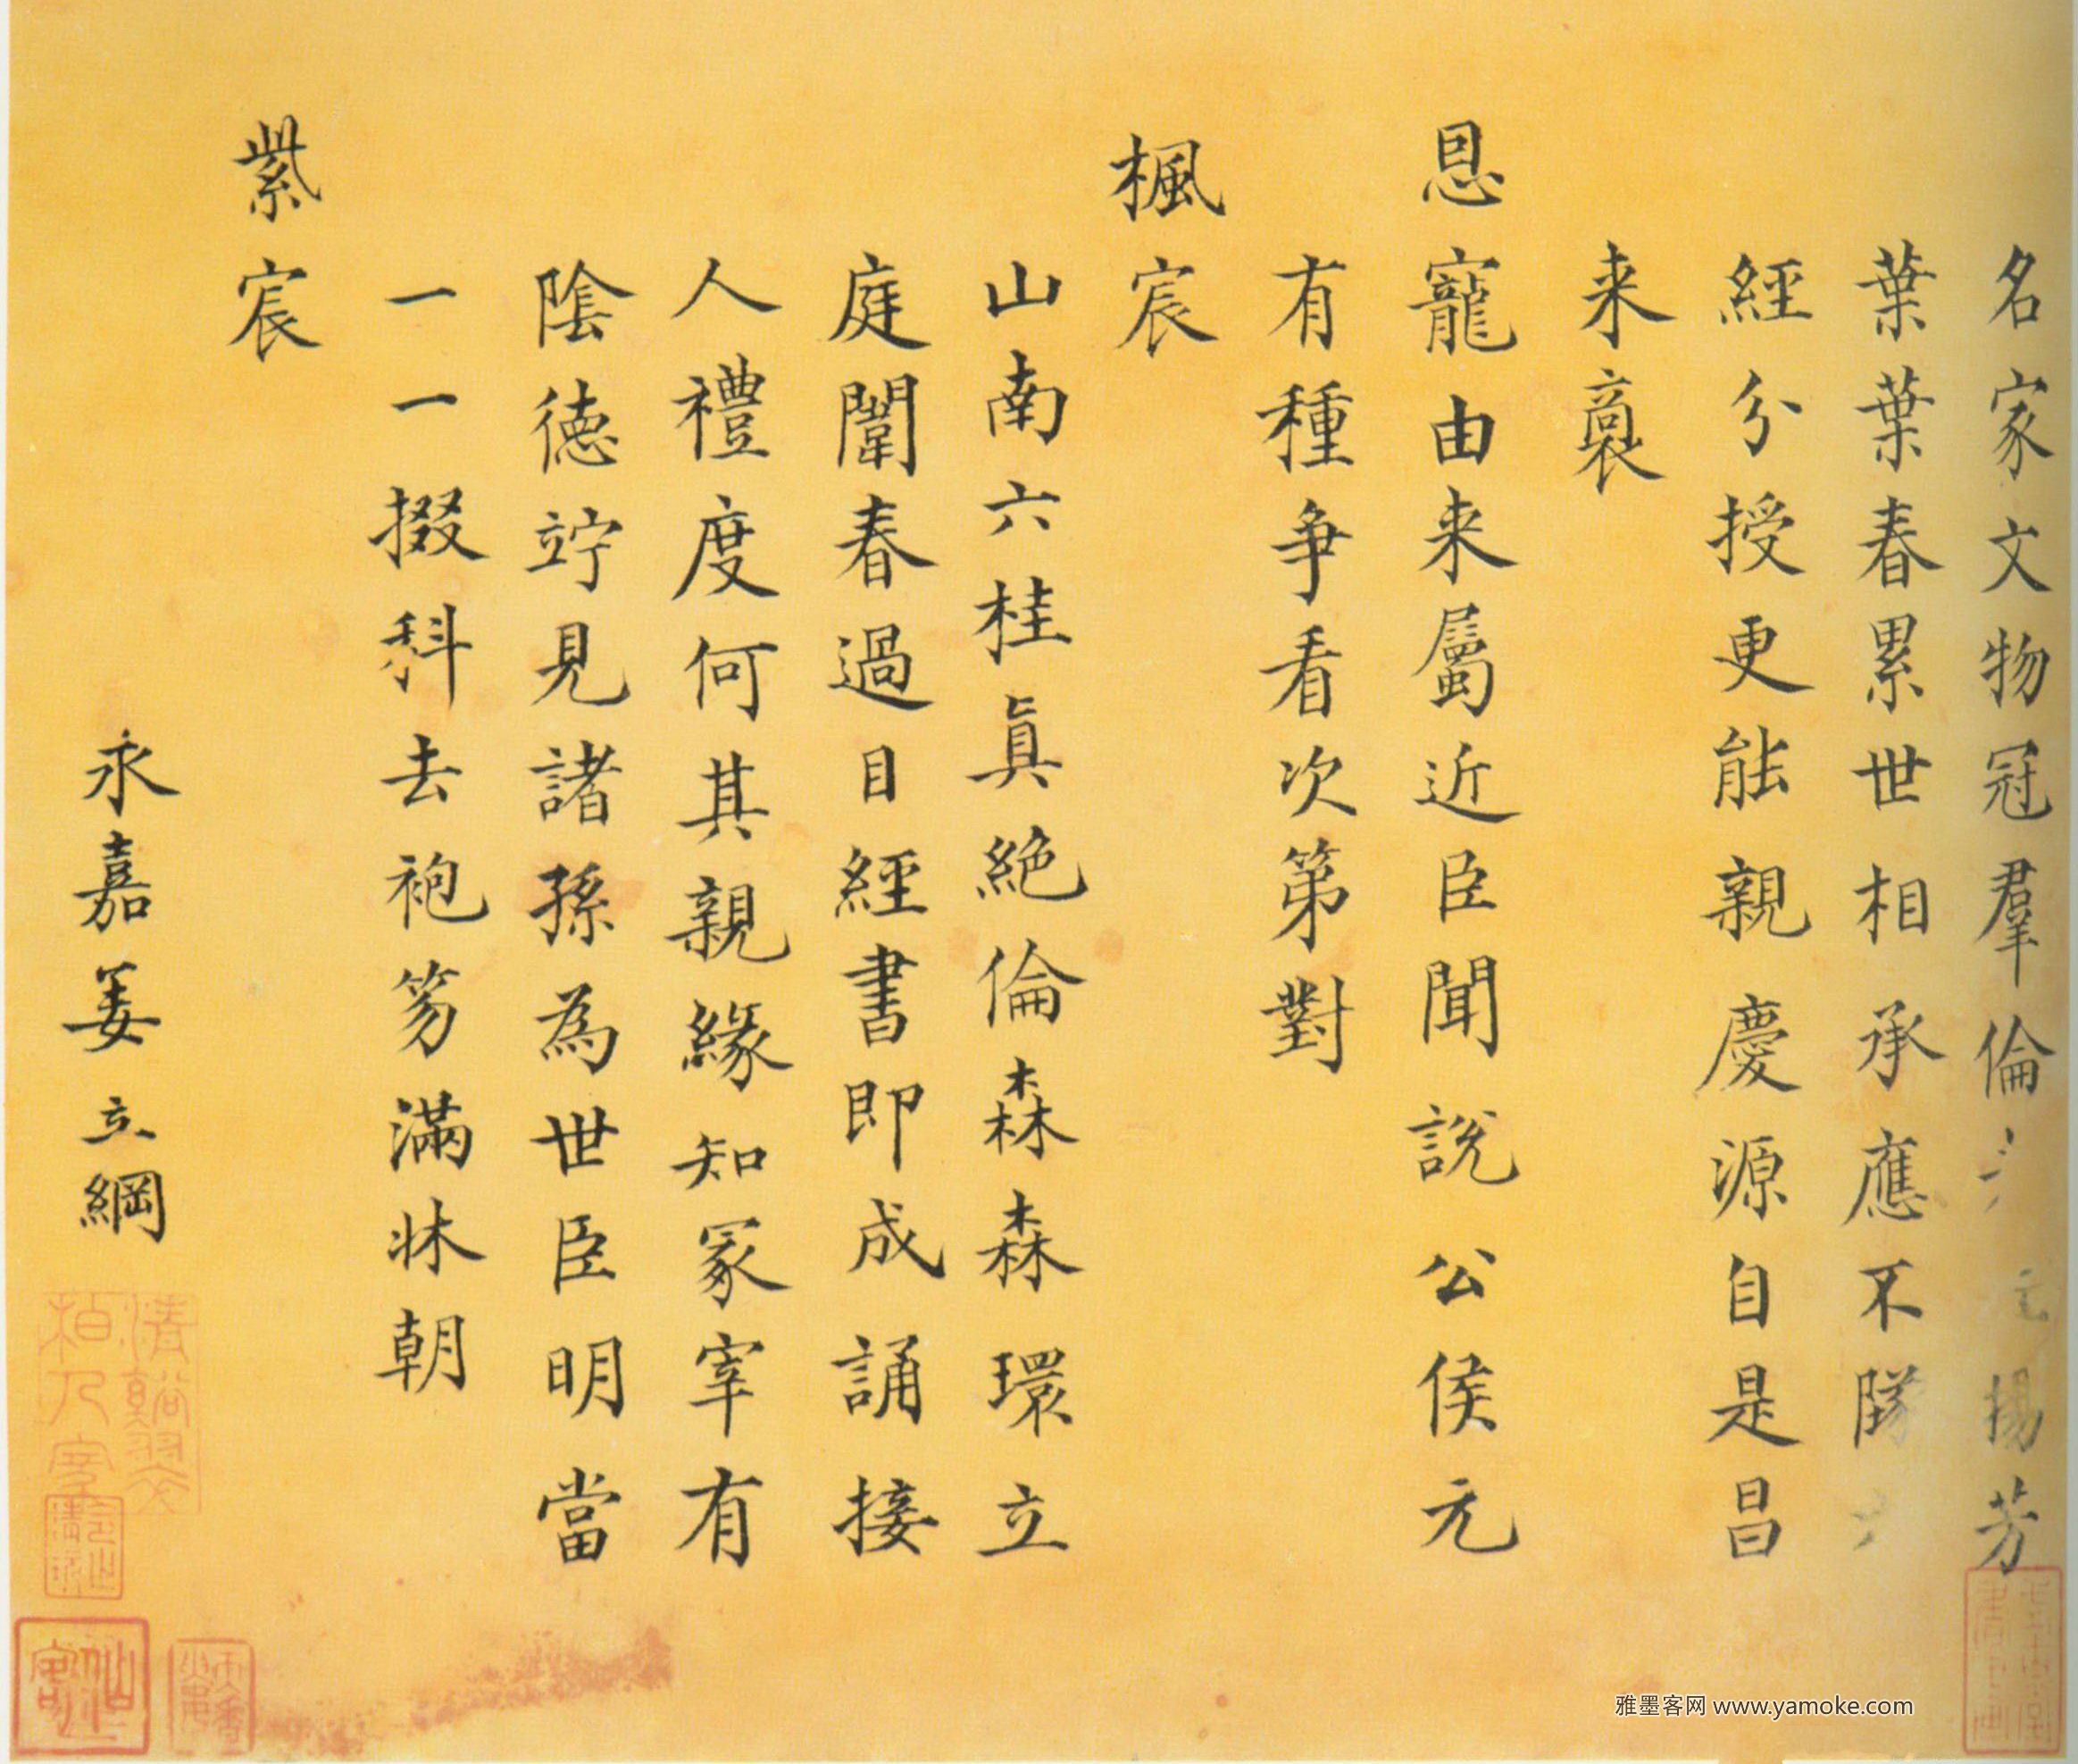 名家文物冠羣倫 揚芳
葉葉春累世相承應不隊
經分授更能親慶源自是昌
来裔
恩寵由来屬近臣聞説公侯元
有種争看次第對
楓宸
山南六桂眞絶倫森森環立
庭闈春過目經書即成誦接
人禮度何其親緣知冢宰有
陰徳竚見諸孫為世臣明當
一一掇科去袍笏滿牀朝
紫宸
永嘉姜立綱
雅墨客网 www.yamoke.com